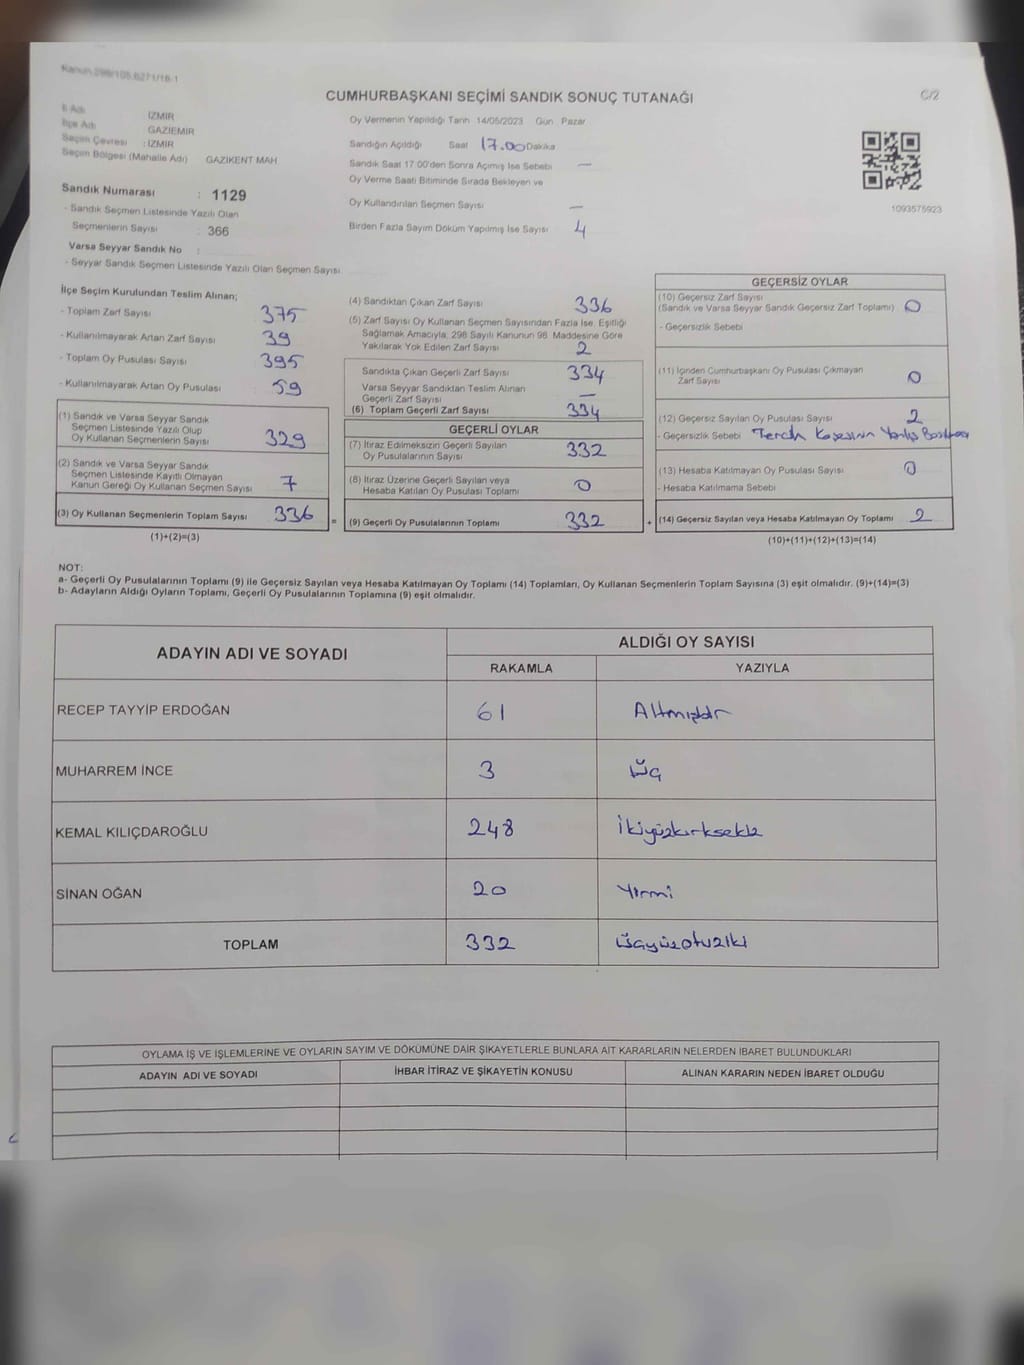 Kanun.298/105,6271/18-1
CUMHURBAŞKANI SEÇİMİ SANDIK SONUÇ TUTANAĞI
C/2
İl Adı : İZMİR
İlçe Adı : GAZİEMİR
Seçim Çevresi : İZMİR
Seçim Bölgesi (Mahalle Adı) GAZİKENT MAH
Sandık Numarası : 1129
- Sandık Seçmen Listesinde Yazılı Olan
Seçmenlerin Sayısı : 366
Varsa Seyyar Sandık No :
- Seyyar Sandık Seçmen Listesinde Yazılı Olan Seçmen Sayısı
Oy Vermenin Yapıldığı Tarih 14/05/2023 Gün Pazar
Sandığın Açıldığı Saat 17.00 Dakika
Sandık Saat 17:00'den Sonra Açımış İse Sebebi —
Oy Verme Saati Bitiminde Sırada Bekleyen ve
Oy Kullandırılan Seçmen Sayısı —
Birden Fazla Sayım Döküm Yapılmış İse Sayısı 4
1093575923
İlçe Seçim Kurulundan Teslim Alınan;
- Toplam Zarf Sayısı 375
- Kullanılmayarak Artan Zarf Sayısı 39
- Toplam Oy Pusulası Sayısı 395
- Kullanılmayarak Artan Oy Pusulası 59
(1) Sandık ve Varsa Seyyar Sandık
Seçmen Listesinde Yazılı Olup
Oy Kullanan Seçmenlerin Sayısı 329
(2) Sandık ve Varsa Seyyar Sandık
Seçmen Listesinde Kayıtlı Olmayan
Kanun Gereği Oy Kullanan Seçmen Sayısı 7
(3) Oy Kullanan Seçmenlerin Toplam Sayısı 336
(1)+(2)=(3)
=
(4) Sandıktan Çıkan Zarf Sayısı 336
(5) Zarf Sayısı Oy Kullanan Seçmen Sayısından Fazla İse, Eşitliği
Sağlamak Amacıyla; 298 Sayılı Kanunun 98. Maddesine Göre
Yakılarak Yok Edilen Zarf Sayısı 2
Sandıkta Çıkan Geçerli Zarf Sayısı 334
Varsa Seyyar Sandıktan Teslim Alınan
Geçerli Zarf Sayısı —
(6) Toplam Geçerli Zarf Sayısı 334
GEÇERLİ OYLAR
(7) İtiraz Edilmeksizin Geçerli Sayılan
Oy Pusulalarının Sayısı 332
(8) İtiraz Üzerine Geçerli Sayılan veya
Hesaba Katılan Oy Pusulası Toplamı 0
(9) Geçerli Oy Pusulalarının Toplamı 332
+
GEÇERSİZ OYLAR
(10) Geçersiz Zarf Sayısı
(Sandık ve Varsa Seyyar Sandık Geçersiz Zarf Toplamı) 0
- Geçersizlik Sebebi
(11) İçinden Cumhurbaşkanı Oy Pusulası Çıkmayan
Zarf Sayısı 0
(12) Geçersiz Sayılan Oy Pusulası Sayısı 2
- Geçersizlik Sebebi Tercih Kaşesinin Yanlış Basılması
(13) Hesaba Katılmayan Oy Pusulası Sayısı 0
- Hesaba Katılmama Sebebi
(14) Geçersiz Sayılan veya Hesaba Katılmayan Oy Toplamı 2
(10)+(11)+(12)+(13)=(14)
NOT:
a- Geçerli Oy Pusulalarının Toplamı (9) ile Geçersiz Sayılan veya Hesaba Katılmayan Oy Toplamı (14) Toplamları, Oy Kullanan Seçmenlerin Toplam Sayısına (3) eşit olmalıdır. (9)+(14)=(3)
b- Adayların Aldığı Oyların Toplamı, Geçerli Oy Pusulalarının Toplamına (9) eşit olmalıdır.
ADAYIN ADI VE SOYADI
ALDIĞI OY SAYISI
RAKAMLA YAZIYLA
RECEP TAYYİP ERDOĞAN 61 Altmışbir
MUHARREM İNCE 3 üç
KEMAL KILIÇDAROĞLU 248 İkiyüzkırksekiz
SİNAN OĞAN 20 Yirmi
TOPLAM 332 üçyüzotuziki
OYLAMA İŞ VE İŞLEMLERİNE VE OYLARIN SAYIM VE DÖKÜMÜNE DAİR ŞİKAYETLERLE BUNLARA AİT KARARLARIN NELERDEN İBARET BULUNDUKLARI
ADAYIN ADI VE SOYADI İHBAR İTİRAZ VE ŞİKAYETİN KONUSU ALINAN KARARIN NEDEN İBARET OLDUĞU